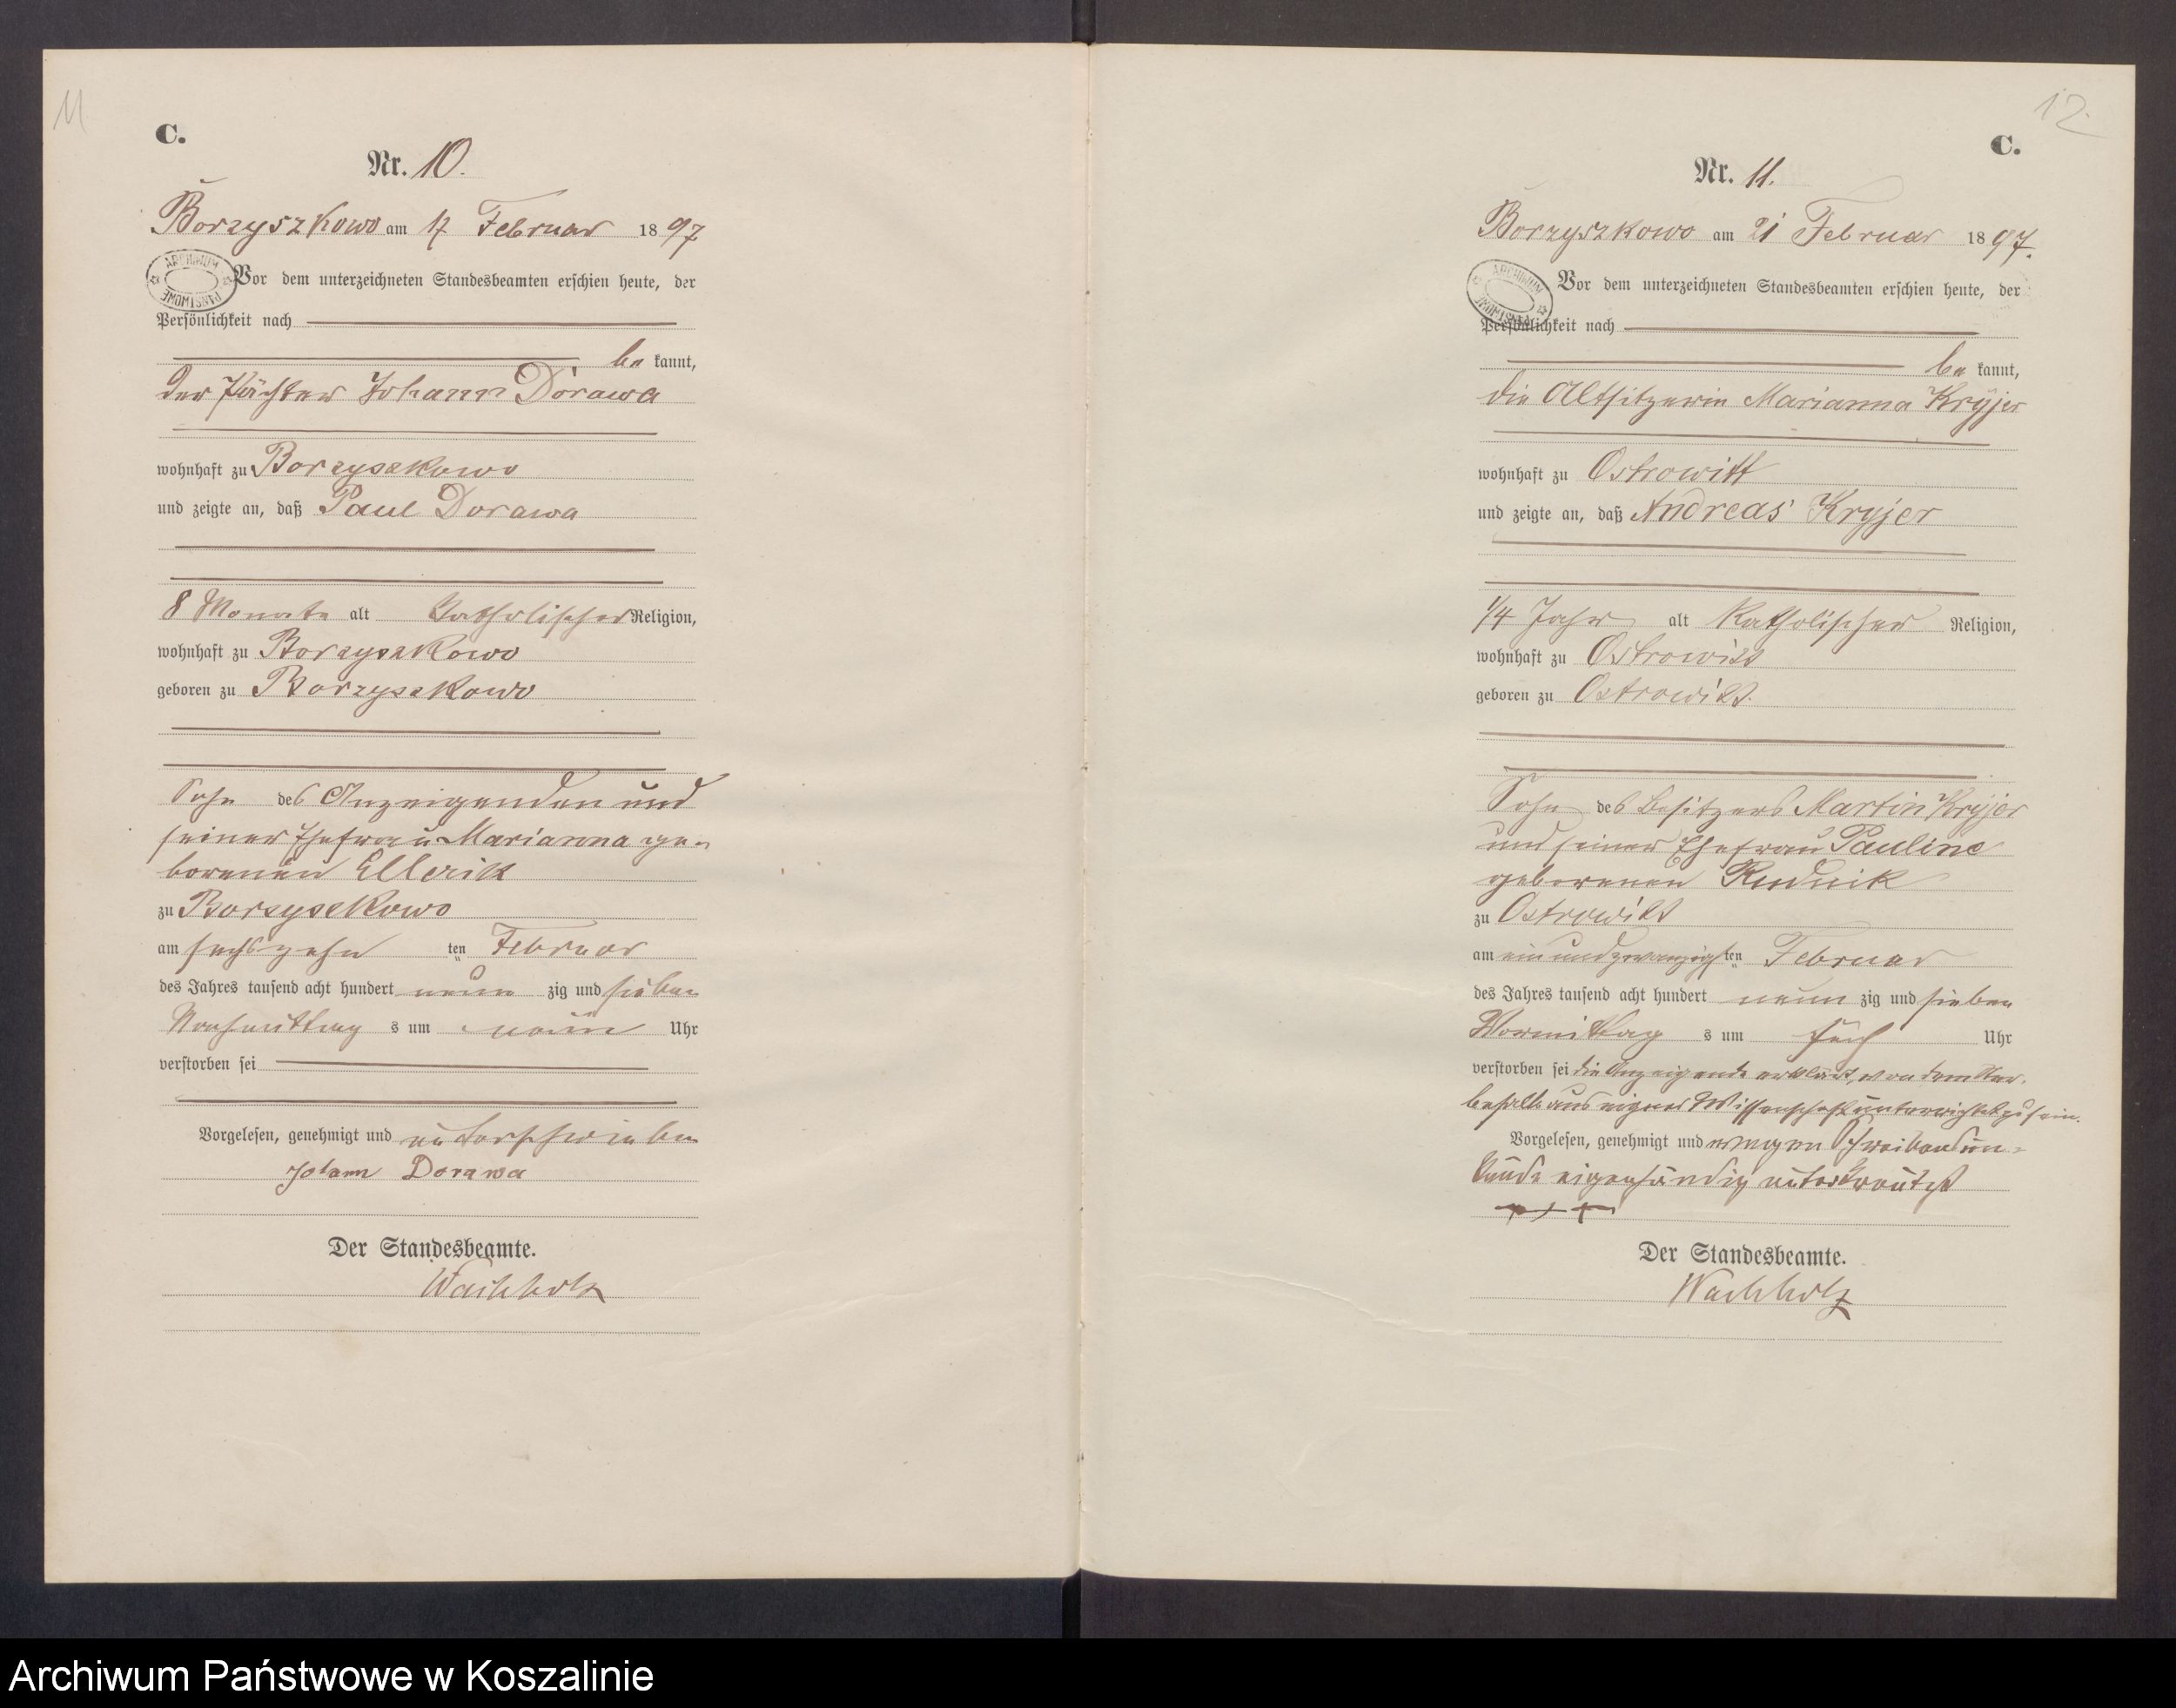 11
C.
Nr. 10.
Borzyszkowo am 17 Februar 1897
ARCHIWUM PAŃSTWOWE
Vor dem unterzeichneten Standesbeamten erschien heute, der
Persönlichkeit nach
be kannt,
der Pächter Johann Dorawa
wohnhaft zu Borzyszkowo
und zeigte an, daß Paul Dorawa
8 Monate alt katholischer Religion,
wohnhaft zu Borzyszkowo
geboren zu Borzyszkowo
Sohn des Anzeigenden und
seiner Ehefrau Marianna ge-
borenen Ellerik
zu Borzyszkowo
am sechszehn ten Februar
des Jahres tausend acht hundert neun zig und sieben
Nachmittag s um neun Uhr
verstorben sei
Vorgelesen, genehmigt und unterschrieben
Johann Dorawa
Der Standesbeamte.
Wachholz
12.
C.
Nr. 11.
Borzyszkowo am 21 Februar 1897.
ARCHIWUM PAŃSTWOWE
Vor dem unterzeichneten Standesbeamten erschien heute, der
Persönlichkeit nach
be kannt,
die Altsitzerin Marianna Kryjer
wohnhaft zu Ostrowitt
und zeigte an, daß Andreas Kryjer
1/4 Jahr alt katholischer Religion,
wohnhaft zu Ostrowitt
geboren zu Ostrowitt.
Sohn des Besitzers Martin Kryjer
und seiner Ehefrau Pauline
geborenen Rudnik
zu Ostrowitt
am einundzwanzigsten Februar
des Jahres tausend acht hundert neun zig und sieben
Vormittag s um Uhr
verstorben sei die Anzeigende erklärt, von dem Ster-
befalle aus eigner Wissenschaft unterrichtet zu sein.
Vorgelesen, genehmigt und wegen Schreibensun-
kunde eigenhändig unterkreuzt
+ + +
Der Standesbeamte.
Wachholz
Archiwum Państwowe w Koszalinie